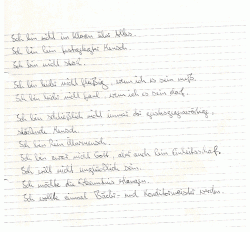 Ich bin nicht im Klaren über Alles.
Ich bin kein fortschrittlicher Mensch.
Ich bin nicht stark.
Ich bin leider nicht fleißig, wenn ich es sein muß.
Ich bin leider nicht faul, wenn ich es sein darf.
Ich bin schließlich nicht immer der
Mensch.
Ich bin kein Übermensch.
Ich bin zwar nicht Gott, aber auch kein Einheitsschaf.
Ich will nicht unglücklich sein.
Ich möchte die Erkenntnis erlangen.
Ich wollte einmal Bäcker- und Konditormeister werden.